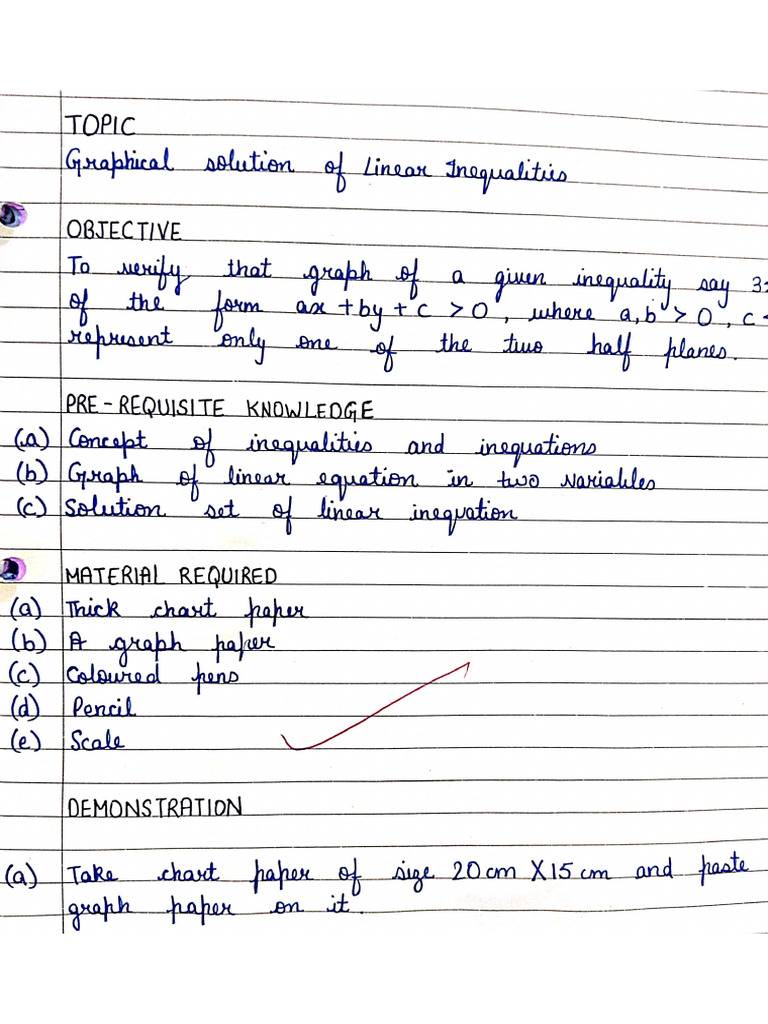 TOPIC
Graphical solution of Linear Inequalities
OBJECTIVE
To verify that graph of a given inequality say 3
of the form ax + by + c > 0, where a, b > 0, c <
represent only one of the two half planes.
PRE-REQUISITE KNOWLEDGE
(a) Concept of inequalities and inequations
(b) Graph of linear equation in two variables
(c) Solution set of linear inequation
MATERIAL REQUIRED
(a) Thick chart paper
(b) A graph paper
(c) Coloured pens
(d) Pencil
(e) Scale
DEMONSTRATION
(a) Take chart paper of size 20 cm X 15 cm and paste
graph paper on it.